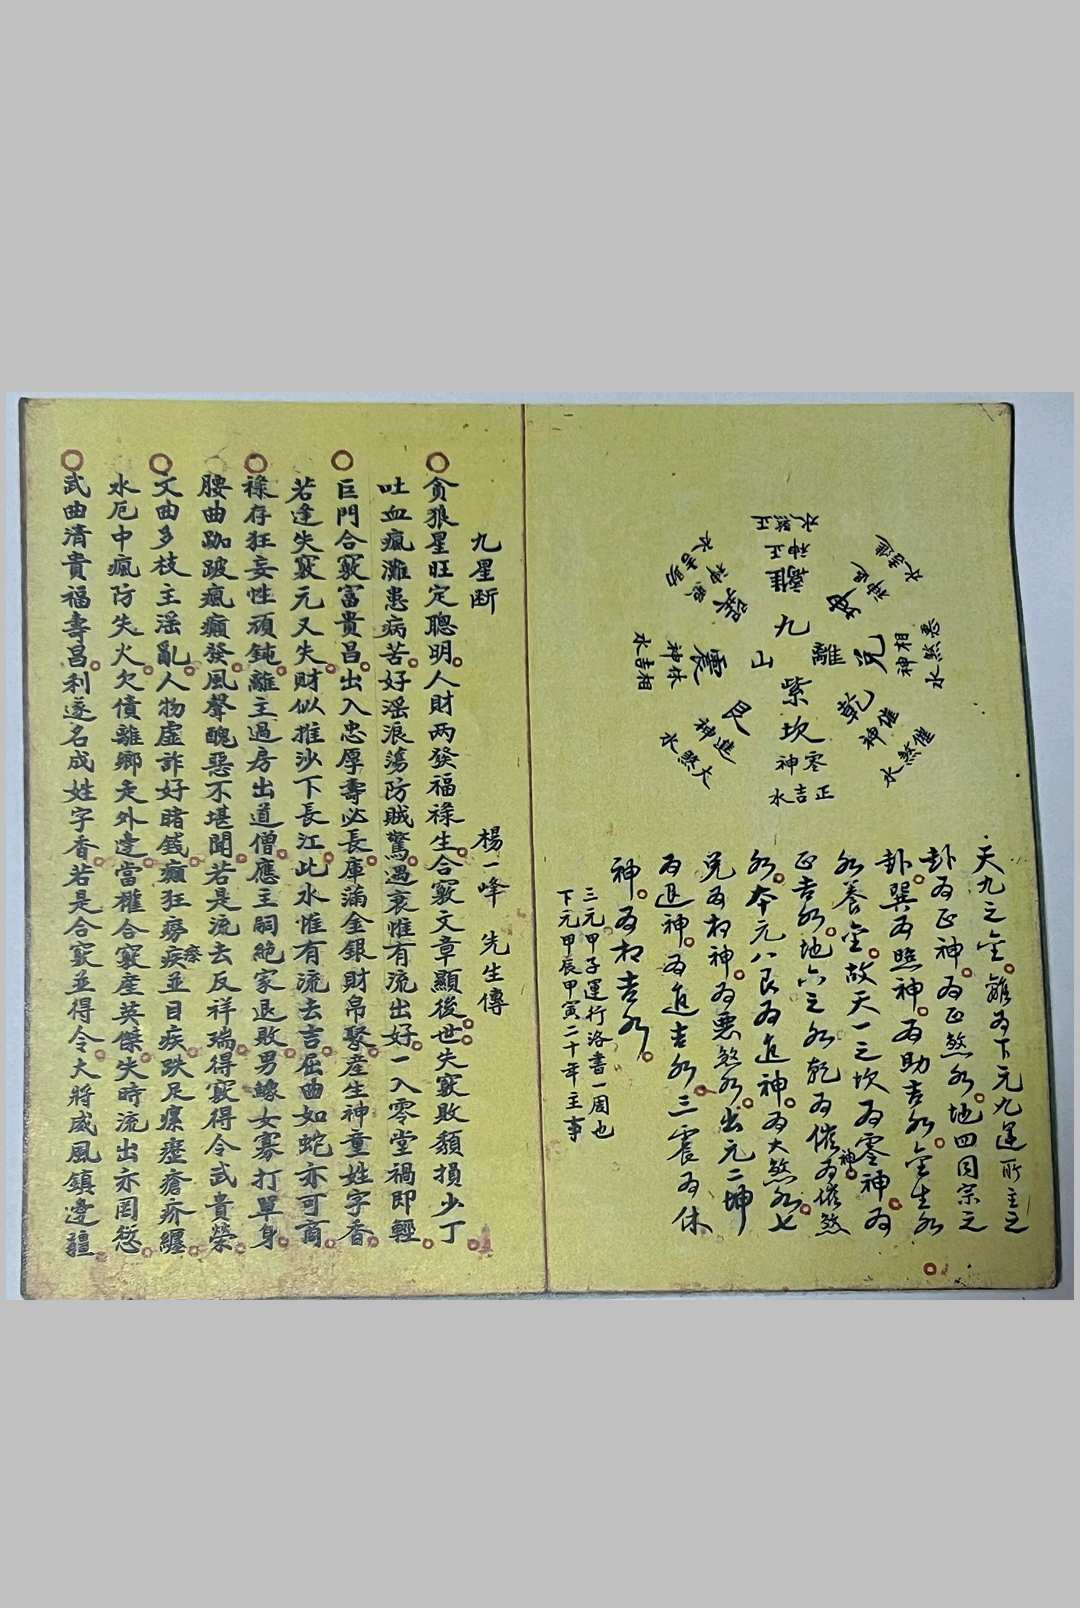 正煞水
正神
離
坤
退神
進吉水
兌
相神
惡煞水
乾
催神
催煞水
坎
零神
正吉水
艮
進神
大煞水
震
休神
相吉水
巽
照神
助吉水
九
離
紫
山
天九之金。離為下元九運所主之
卦為正神。為正煞水。地四同宗之
卦。巽為照神。為助吉水。金生水
水養金。故天一之坎為零神。為
正吉水。地六之水乾為催神。為催煞
水。本元八艮為進神。為大煞水。七
兌為相神。為惡煞水。出元二坤
為退神。為進吉水。三震為休
神。為相吉水。
三元甲子運行洛書一周也
下元甲辰甲寅二十年主事
九星断 楊一峰 先生傳
貪狼星旺定聰明。人財兩發福祿生。合竅文章顯後世。失竅敗頹損少丁。
吐血瘋灘患病苦。好滛浪蕩防賊驚。遇衰惟有流出好。一入零堂禍即輕。
巨門合竅富貴昌。出入忠厚壽必長。庫滿金銀財帛聚。産生神童姓字香。
若逢失竅元又失。財似推沙下長江。此水惟有流去吉。屈曲如蛇亦可商。
祿存狂妄性頑鈍。離主過房出道僧。應主嗣絶家退敗。男鰥女寡打單身。
腰曲跏跛瘋癲發。風聲醜惡不堪聞。若是流去反祥瑞。得竅得令武貴榮。
文曲多枝主滛亂。人物虛詐好賭錢。癲狂癆疾並目疾。跌足瘰癧瘡疥纏。
水厄中瘋防失火。欠債離鄉走外邊。當權合竅産英傑。失時流出亦罔愆。
武曲清貴福壽昌。利遂名成姓字香。若是合竅並得令。大將威風鎮邊疆。